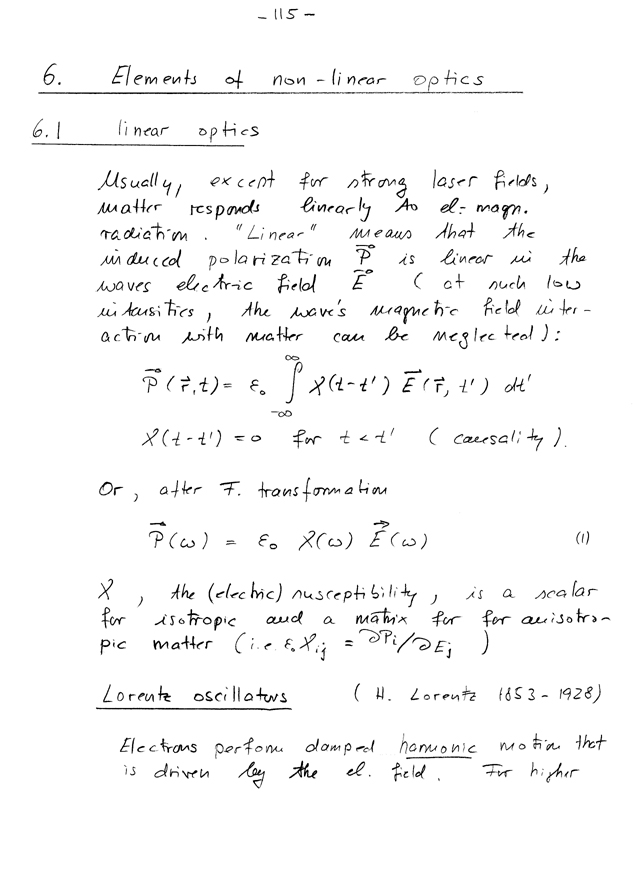 - 115 -
6. Elements of non-linear optics
6.1 linear optics
Usually, except for strong laser fields,
matter responds linearly to el.-magn.
radiation. "Linear" means that the
induced polarization P⃗ is linear in the
waves electric field E⃗ (at such low
intensities, the wave's magnetic field inter-
action with matter can be neglected):
P⃗(r⃗,t) = ε₀ ∫_{-∞}^{∞} χ(t-t') E⃗(r⃗, t') dt'
χ(t-t') = 0 for t < t' (causality).
Or, after F. transformation
P⃗(ω) = ε₀ χ(ω) E⃗(ω) (1)
χ, the (electric) susceptibility, is a scalar
for isotropic and a matrix for for anisotro-
pic matter (i.e. ε₀χ_ij = ∂P_i/∂E_j)
Lorentz oscillators (H. Lorentz 1853-1928)
Electrons perform damped harmonic motion that
is driven by the el. field. For higher